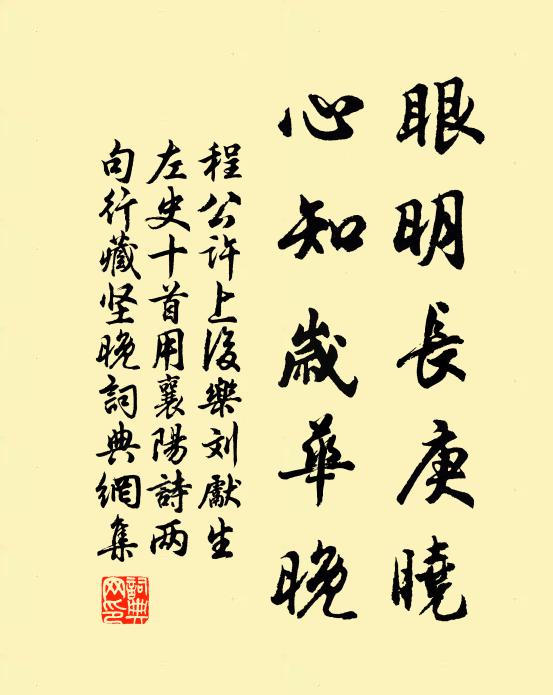 眼明長庚曉
心知歲華晚
程公許上後樂刘獻生
左史十首用襄陽詩两
句行藏坚晚詞典網集
詞典
网印